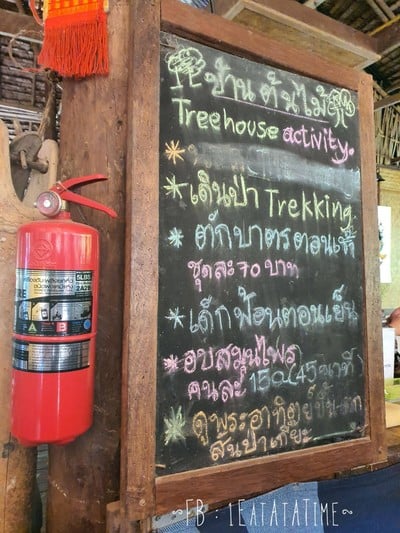 บ้านต้นไม้
Treehouse activity.
เดินป่า Trekking
ตักบาตรตอนเช้า
ชุดละ 70 บาท
เด็กฟ้อนตอนเย็น
อบสมุนไพร
คนละ 150 (45 นาที)
ดูพระอาทิตย์ขึ้น-ตก
สันป่าเกี๊ยะ
5LBS
B
FB : 1EATATATIME